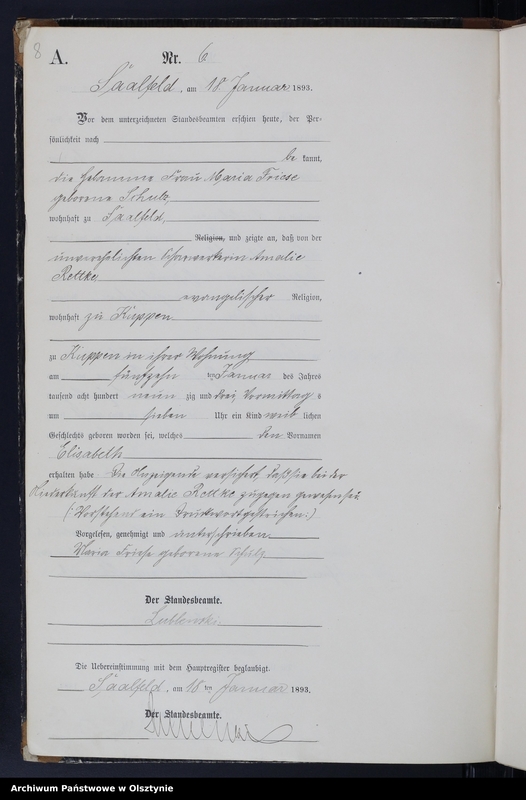 8
A.
Nr. 6
Saalfeld, am 18. Januar 1893.
Vor dem unterzeichneten Standesbeamten erschien heute, der Per-
sönlichkeit nach
be kannt,
die Hebamme Frau Maria Friese
geborene Schulz,
wohnhaft zu Saalfeld,
Religion, und zeigte an, daß von der
unverehelichten Amalie
Rettke,
evangelischer Religion,
wohnhaft zu Kuppen
zu Kuppen in ihrer Wohnung
am fünfzehn ten Januar des Jahres
tausend acht hundert neun zig und drei Vormittag s
um sieben Uhr ein Kind weib lichen
Geschlechts geboren worden sei, welches den Vornamen
Elisabeth
erhalten habe. Die Anzeigende versichert, daß sie bei der
Niederkunft der Amalie Rettke zugegen gewesen sei
(: Vorstehend ein Druckwort gestrichen :)
Vorgelesen, genehmigt und unterschrieben
Maria Friese geborene Schulz
Der Standesbeamte.
Die Uebereinstimmung mit dem Hauptregister beglaubigt.
Saalfeld, am 18 ten Januar 1893.
Der Standesbeamte.
Archiwum Państwowe w Olsztynie